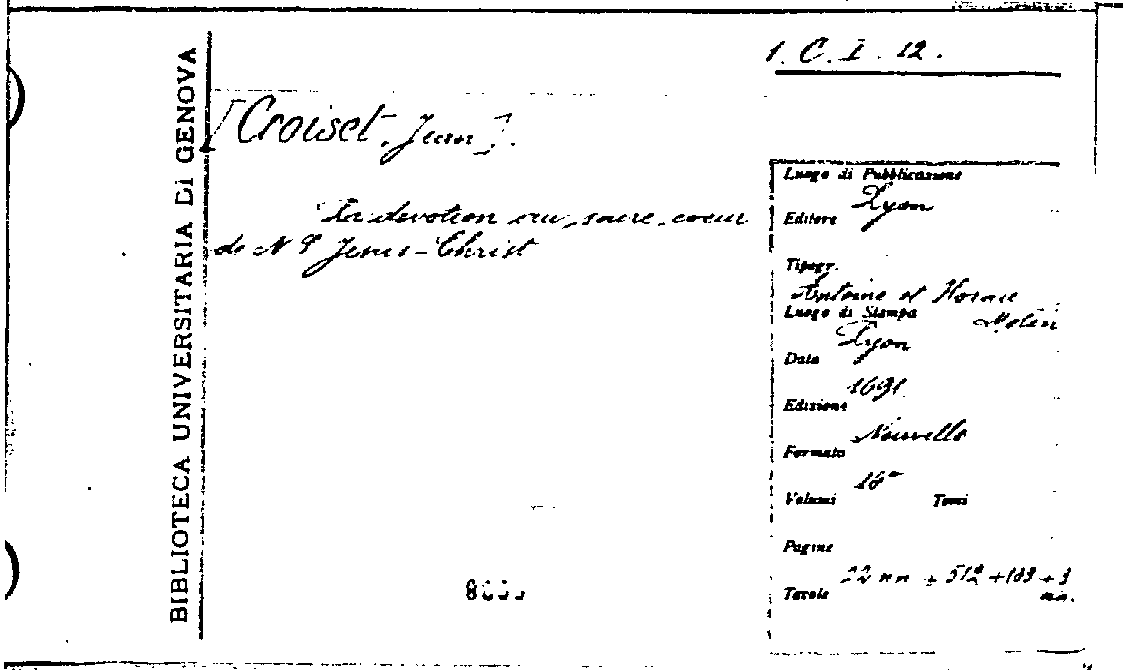 1. C. I. 12.
BIBLIOTECA UNIVERSITARIA DI GENOVA
[Croiset, Jean].
La devotion au sacre coeur
de N S Jesus-Christ
Luogo di Pubblicazione
Lyon
Editore
Tipogr.
Antoine et Horace
Molin
Luogo di Stampa
Lyon
Data
1691
Edizione
Nouvelle
Formato
16°
Volumi Tomi
Pagine
22 nn + 512 + 189 + 3
nn.
Tavole